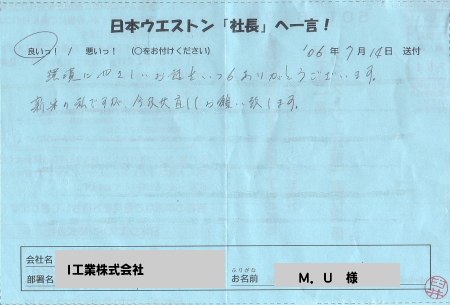 日本ウエストン「社長」へ一言！
良いっ！ / 悪いっ！ （○をお付けください） '06 年 7 月 14 日 送付
環境に や しいお仕事いつもありがとうございます。
の私ですが、今後共宜しくお願い致します。
会社名 I工業株式会社
部署名
ふりがな
お名前 M．U 様